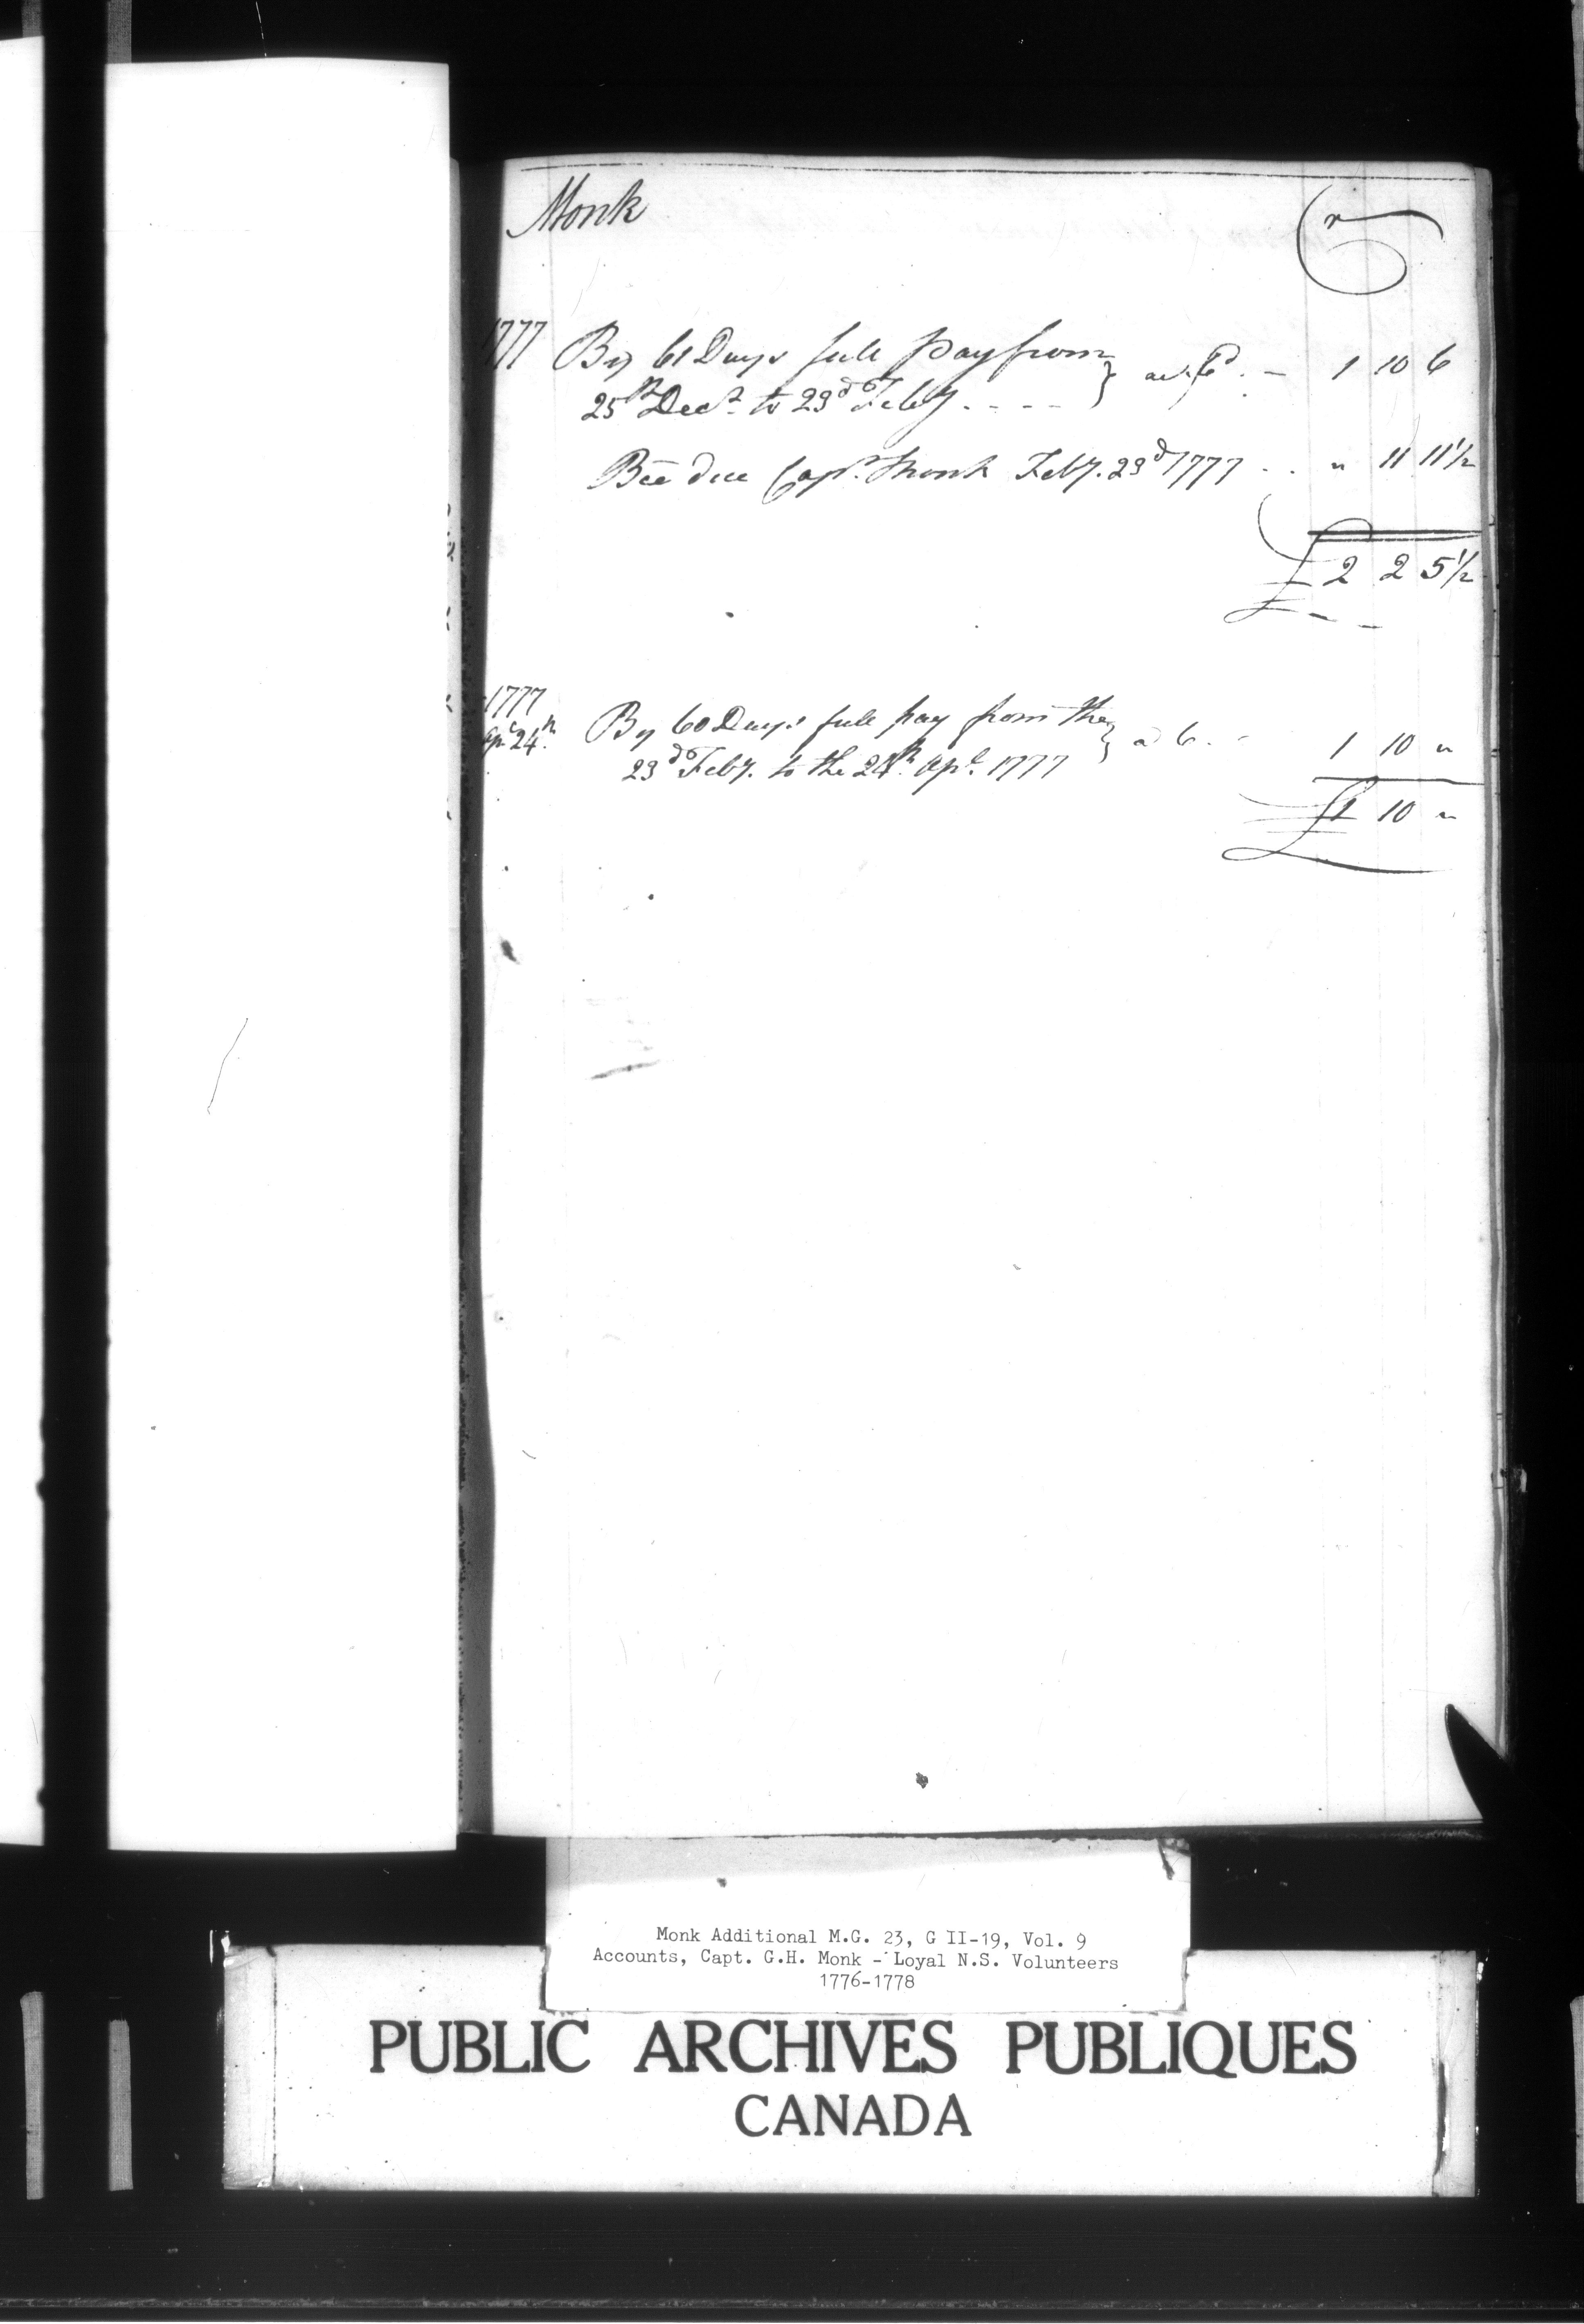 Monk
Cr
1777 By 61 Days full Pay from } at 6d. - 1 10 6
25th Decr. to 23d Feby. - - - -
Bce due Capt. Monk Feby. 23d 1777 - - " 11 11 1/2
£ 2 2 5 1/2
1777
Apl. 24th. By 60 Days full pay from the } a 6. - 1 10 "
23d Feby. to the 24th. Apl. 1777
£ 1 10 "
Monk Additional M.G. 23, G II-19, Vol. 9
Accounts, Capt. G.H. Monk - Loyal N.S. Volunteers
1776-1778
PUBLIC ARCHIVES PUBLIQUES
CANADA